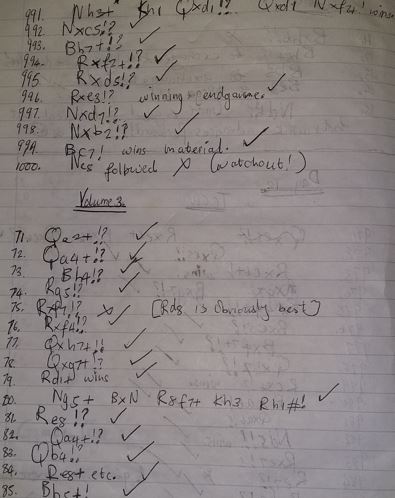 991. Nh3+ Kh1 Qxd1!? Qxd1 Nxf2+! wins
992. Nxc5!? ✓
993. Bh7+!? ✓
994. Rxf2+!? ✓
995. Rxd5!? ✓
996. Rxe3!? winning endgame. ✓
997. Nxd7!? ✓
998. Nxb2!? ✓
999. Bc7! wins material. ✓
1000. Nc5 followed X (watchout!)
Volume 3.
71. Qa2+!? ✓
72. Qa4+!? ✓
73. Bh4!? ✓
74. Rg5!? ✓
75. Rxf7!? X [Rd8 is obviously best]
76. Rxf4!? ✓
77. Qxh7+!! ✓
78. Qxg7+!? ✓
79. Rd1+ wins ✓
80. Ng5+ BxN R8f7+ Kh3 Rh1#! ✓
81. Re8!? ✓
82. Qa4+!? ✓
83. Qb4!? ✓
84. Re8+ etc. ✓
85. Bb5+! ✓